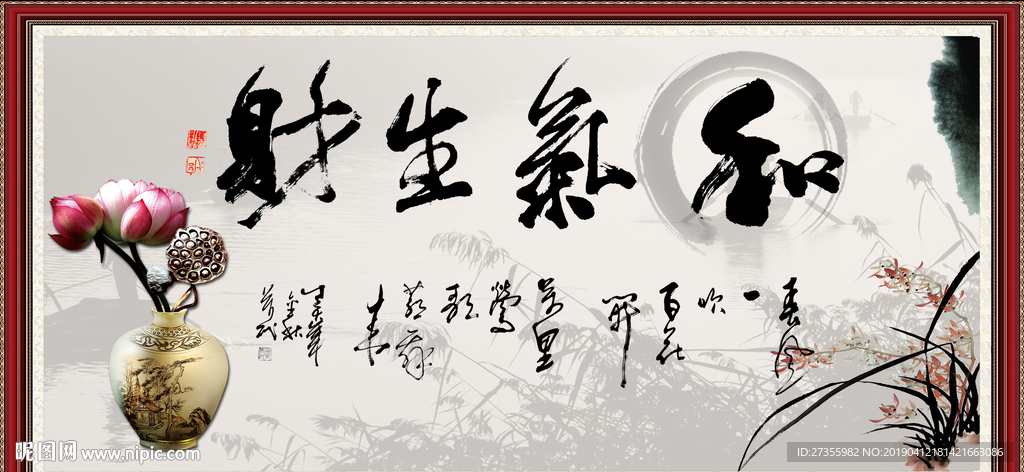 和氣生財
春風一吹百花開萬里鶯歌燕舞来
昵图网 www.nipic.com
ID:27355982 NO:20190412181421663086